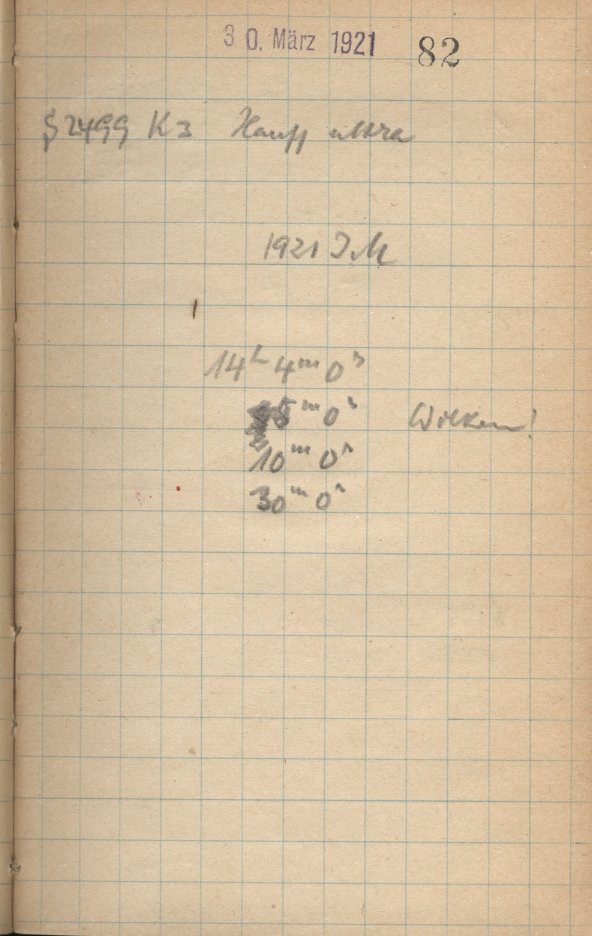 30. März 1921 82
§ 2499 K3 Hauff ultra
1921 J.M
14ʰ 4ᵐ 0ˢ
5ᵐ 0ˢ Wolken!
10ᵐ 0ˢ
30ᵐ 0ˢ